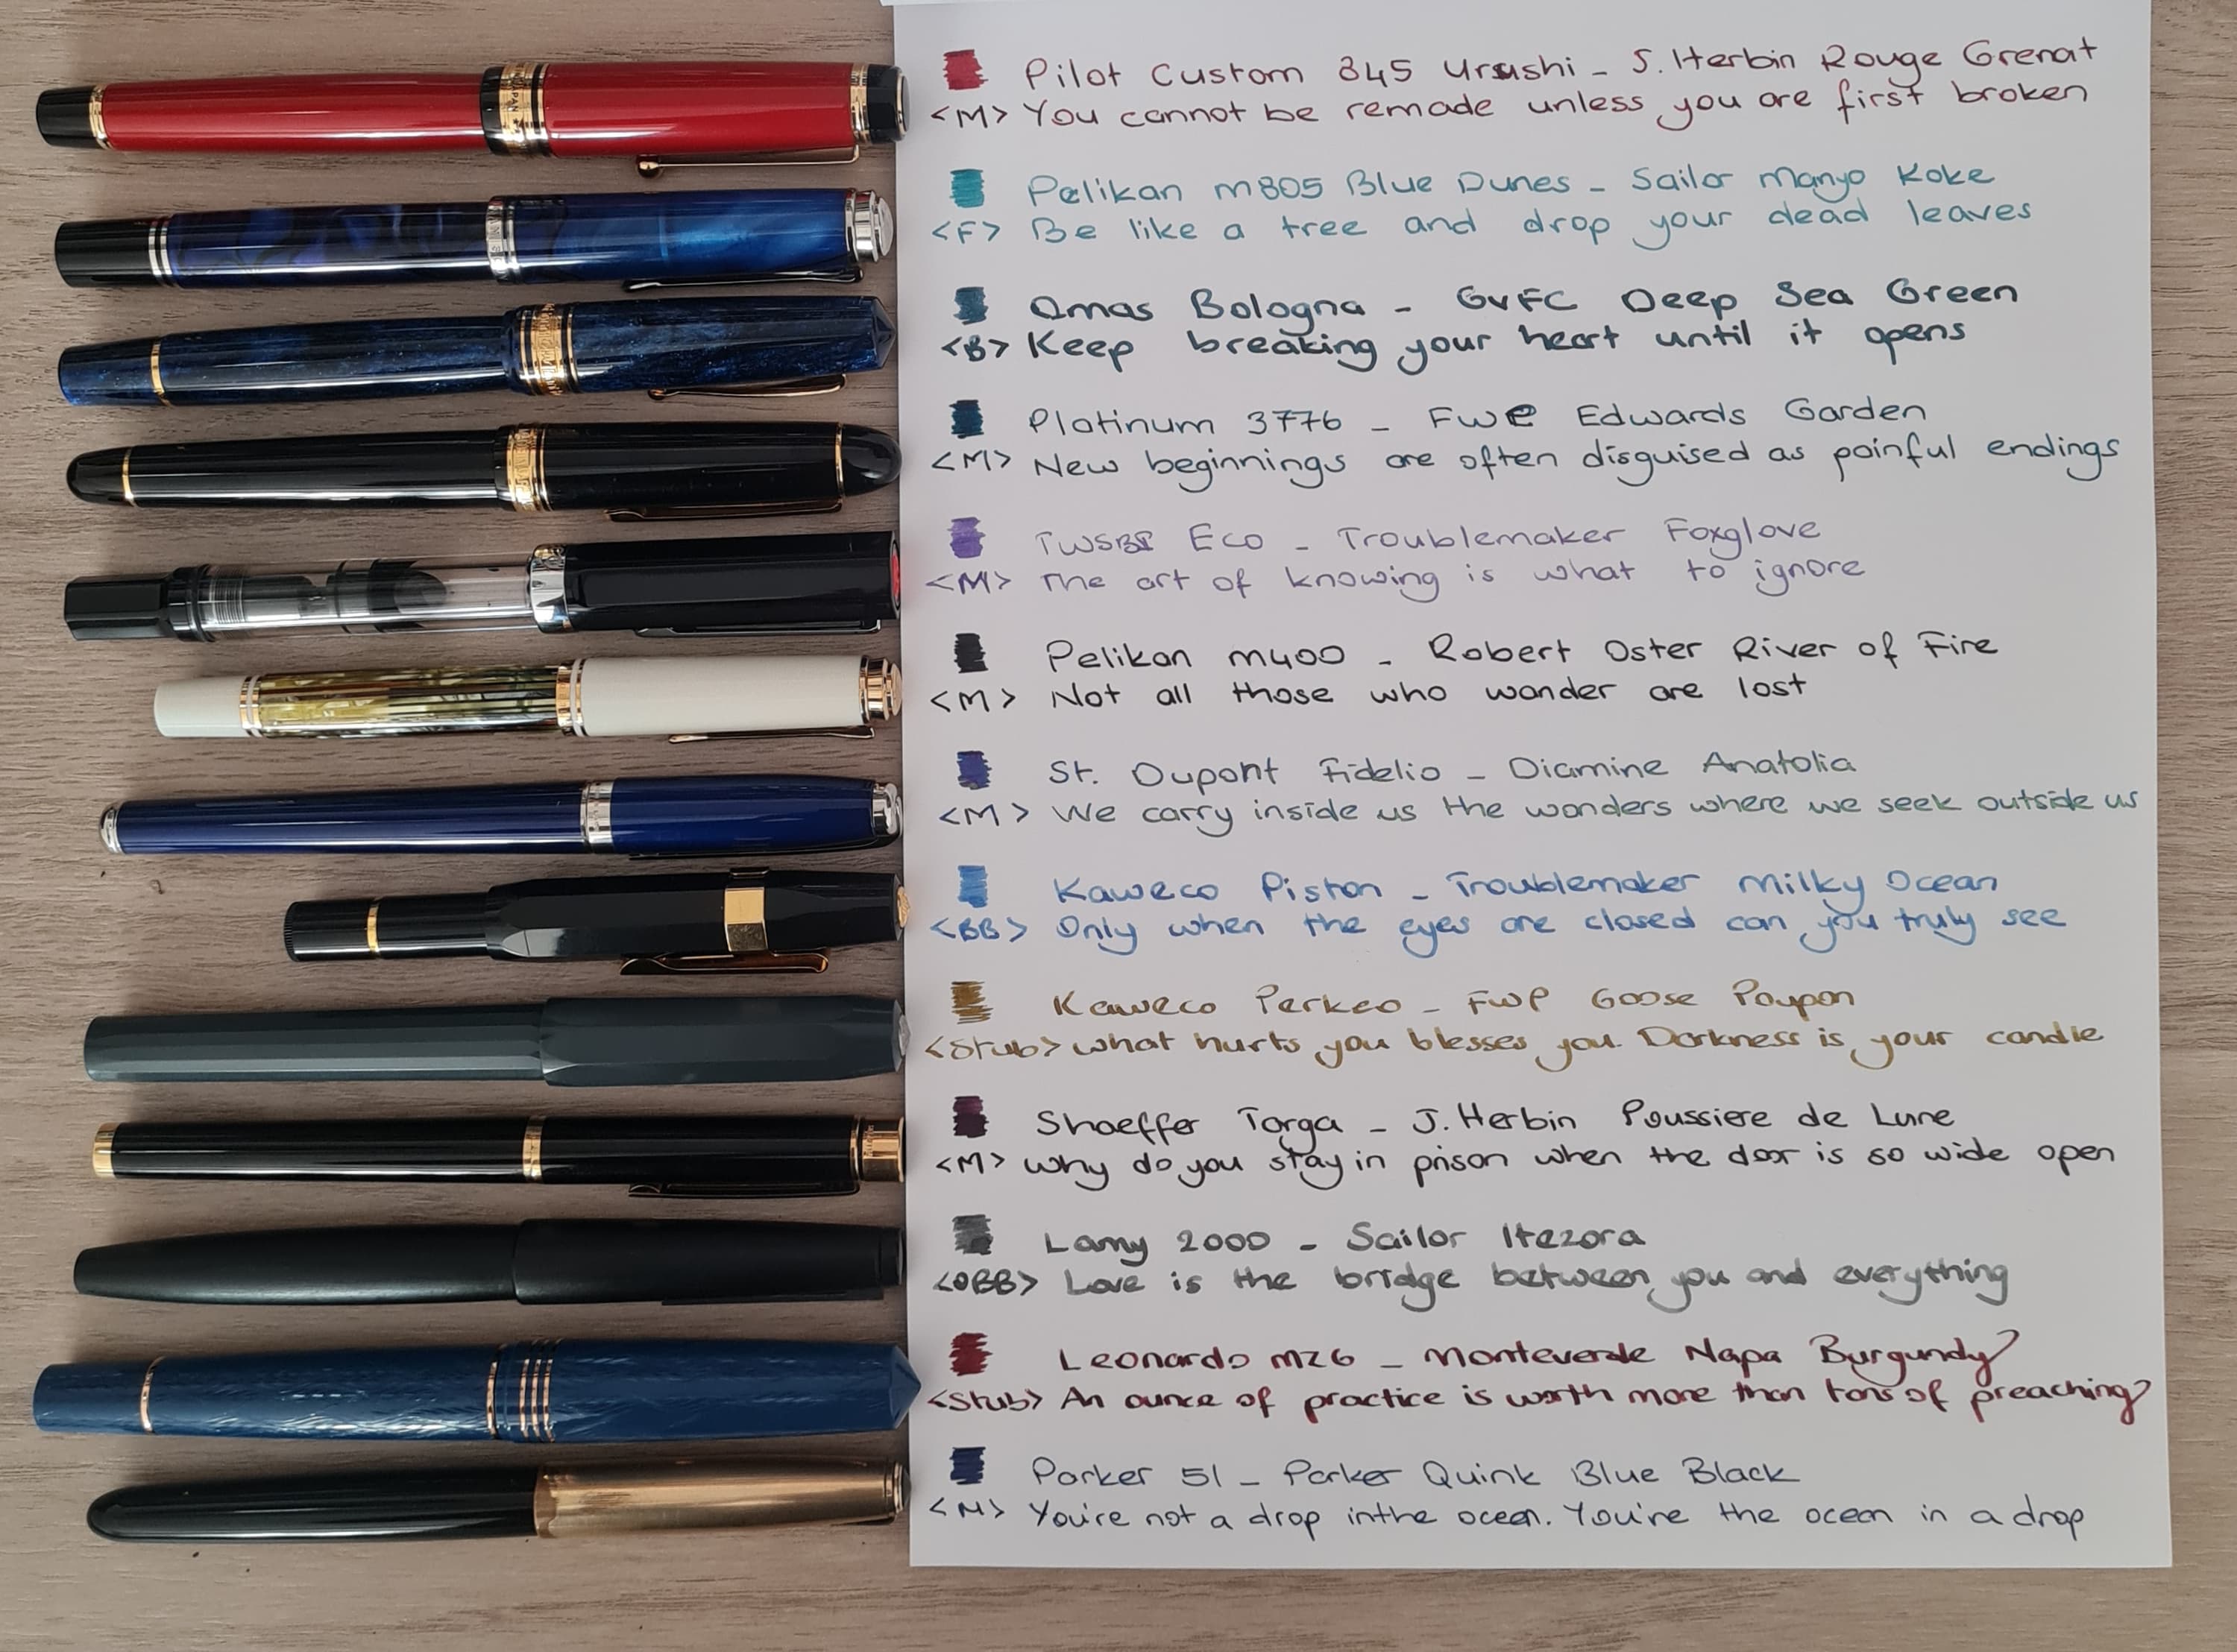 Pilot Custom 845 Urushi - J. Herbin Rouge Grenat
<M> You cannot be remade unless you are first broken
Pelikan M805 Blue Dunes - Sailor Manyo Koke
<F> Be like a tree and drop your dead leaves
Omas Bologna - GVFC Deep Sea Green
<B> Keep breaking your heart until it opens
Platinum 3776 - FWP Edwards Garden
<M> New beginnings are often disguised as painful endings
TWSBI Eco - Troublemaker Foxglove
<M> The art of knowing is what to ignore
Pelikan M400 - Robert Oster River of Fire
<M> Not all those who wander are lost
St. Dupont Fidelio - Diamine Anatolia
<M> We carry inside us the wonders where we seek outside us
Kaweco Piston - Troublemaker Milky Ocean
<BB> Only when the eyes are closed can you truly see
Kaweco Perkeo - FWP Goose Poupon
<Stub> What hurts you blesses you. Darkness is your candle
Sheaffer Targa - J. Herbin Poussiere de Lune
<M> Why do you stay in prison when the door is so wide open
Lamy 2000 - Sailor Itezora
<OBB> Love is the bridge between you and everything
Leonardo MZG - Monteverde Napa Burgundy
<Stub> An ounce of practice is worth more than tons of preaching
Parker 51 - Parker Quink Blue Black
<M> You're not a drop in the ocean. You're the ocean in a drop